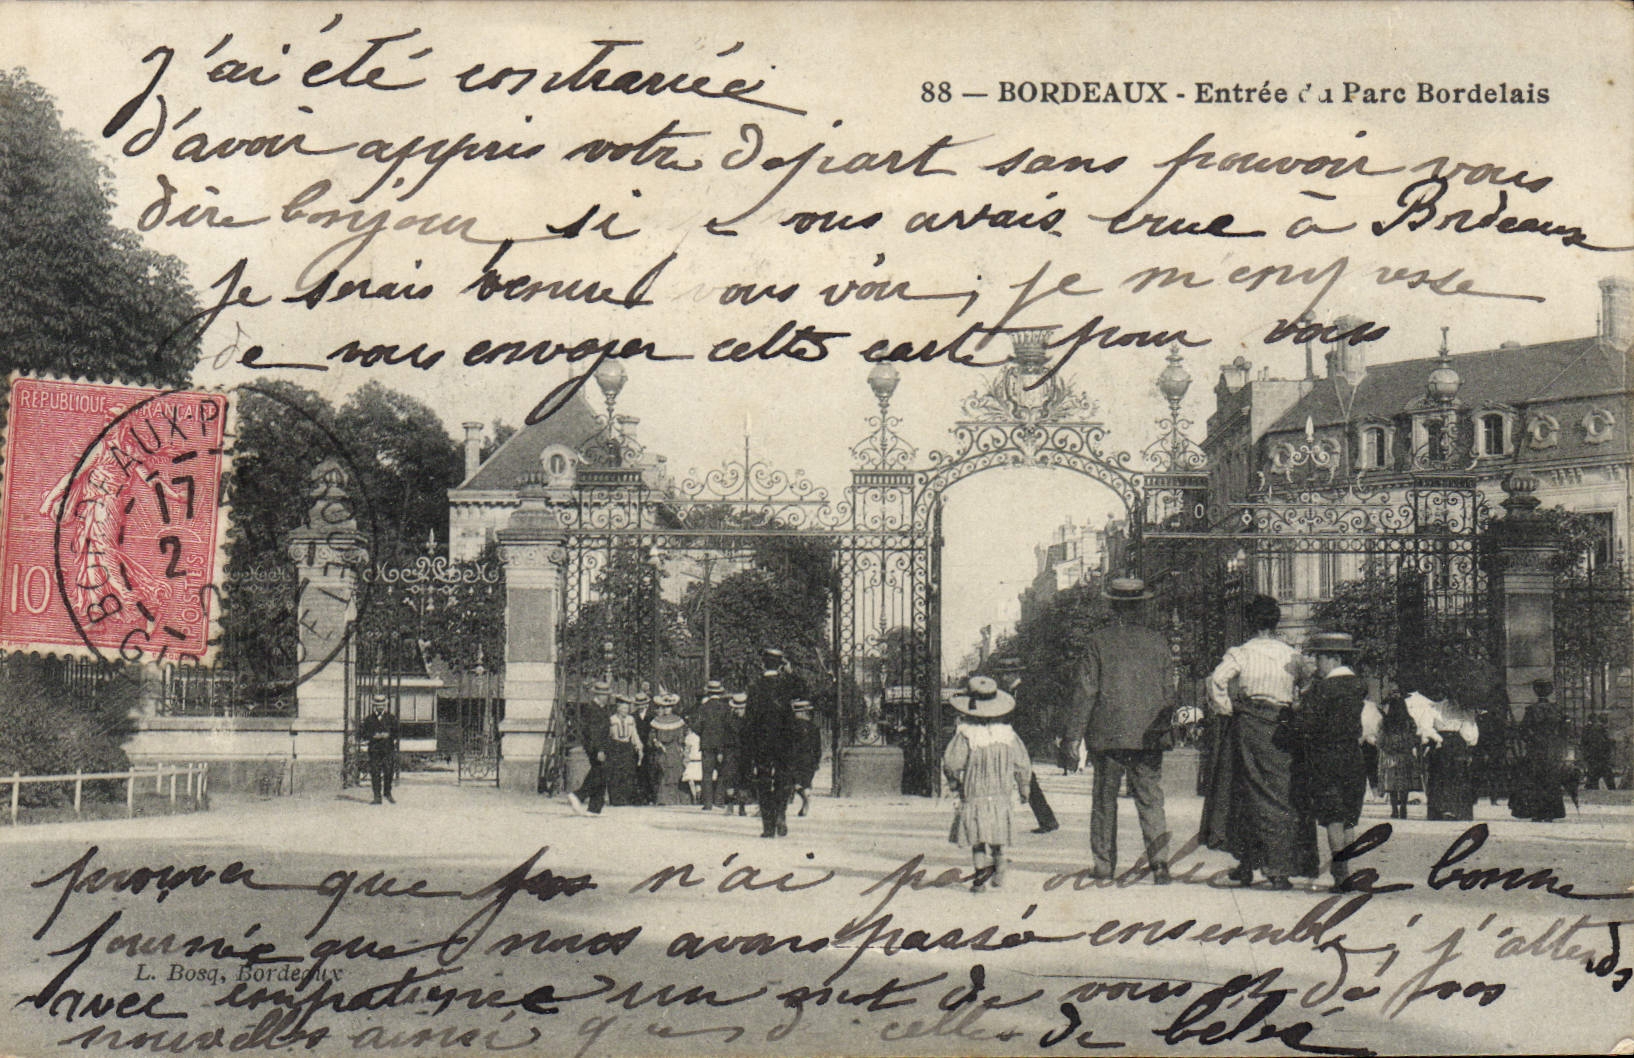 88 — BORDEAUX - Entrée du Parc Bordelais
J'ai été contrariée
d'avoir appris votre départ sans pouvoir vous
dire bonjour, si je vous avais crue à Bordeaux
je serais venue vous voir, je m'empresse
de vous envoyer cette carte pour vous
RÉPUBLIQUE FRANÇAISE
10
POSTES
BORDEAUX
17
2
GIRONDE
prouver que je n'ai pas oublié la bonne
journée que nous avons passée ensemble; j'attends
L. Bosq, Bordeaux
avec impatience un mot de vous et de vos
nouvelles ainsi que de celles de bébé